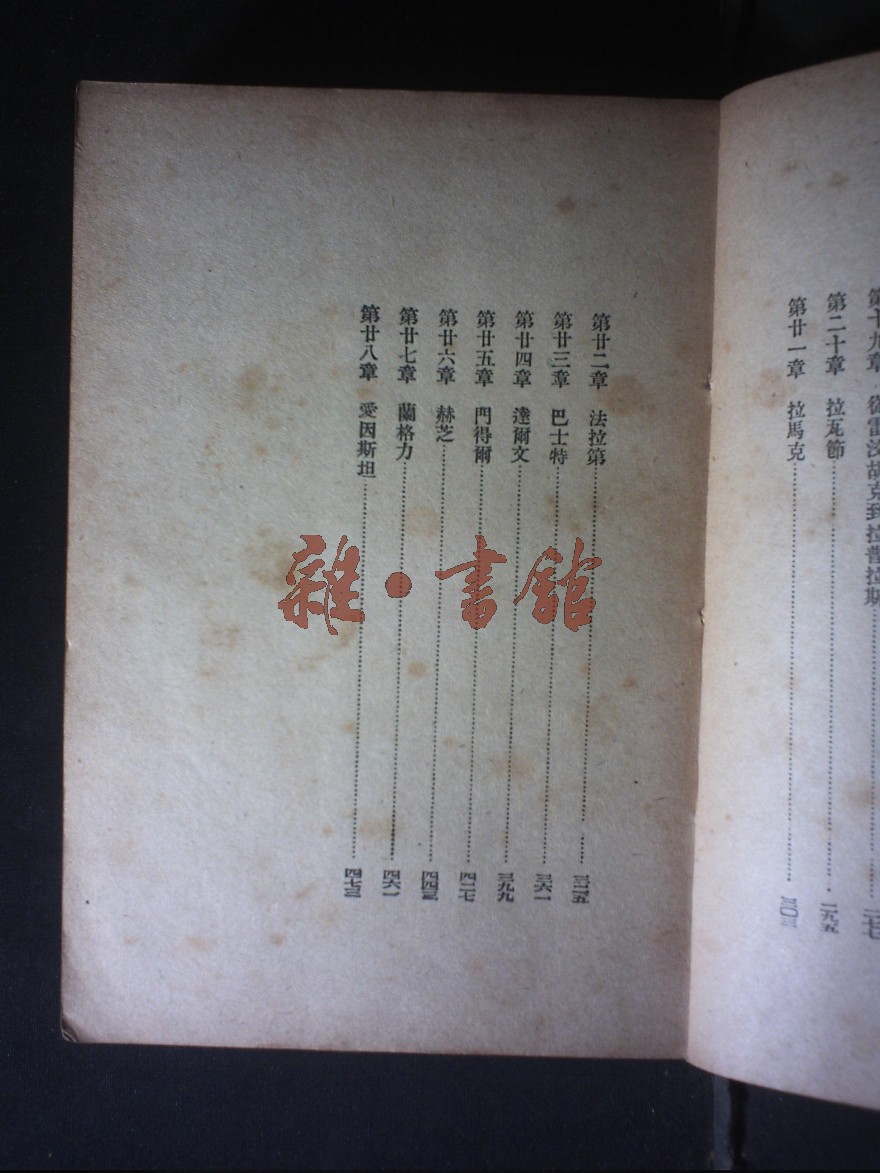 第十九章 從雷汶胡克到拉普拉斯………二七七
第二十章 拉瓦節………二九五
第廿一章 拉馬克………三〇三
第廿二章 法拉第………三二五
第廿三章 巴士特………三六一
第廿四章 達爾文………三九九
第廿五章 門得爾………四二七
第廿六章 赫芝………四四三
第廿七章 蘭格力………四六一
第廿八章 愛因斯坦………四七三
雜·書館